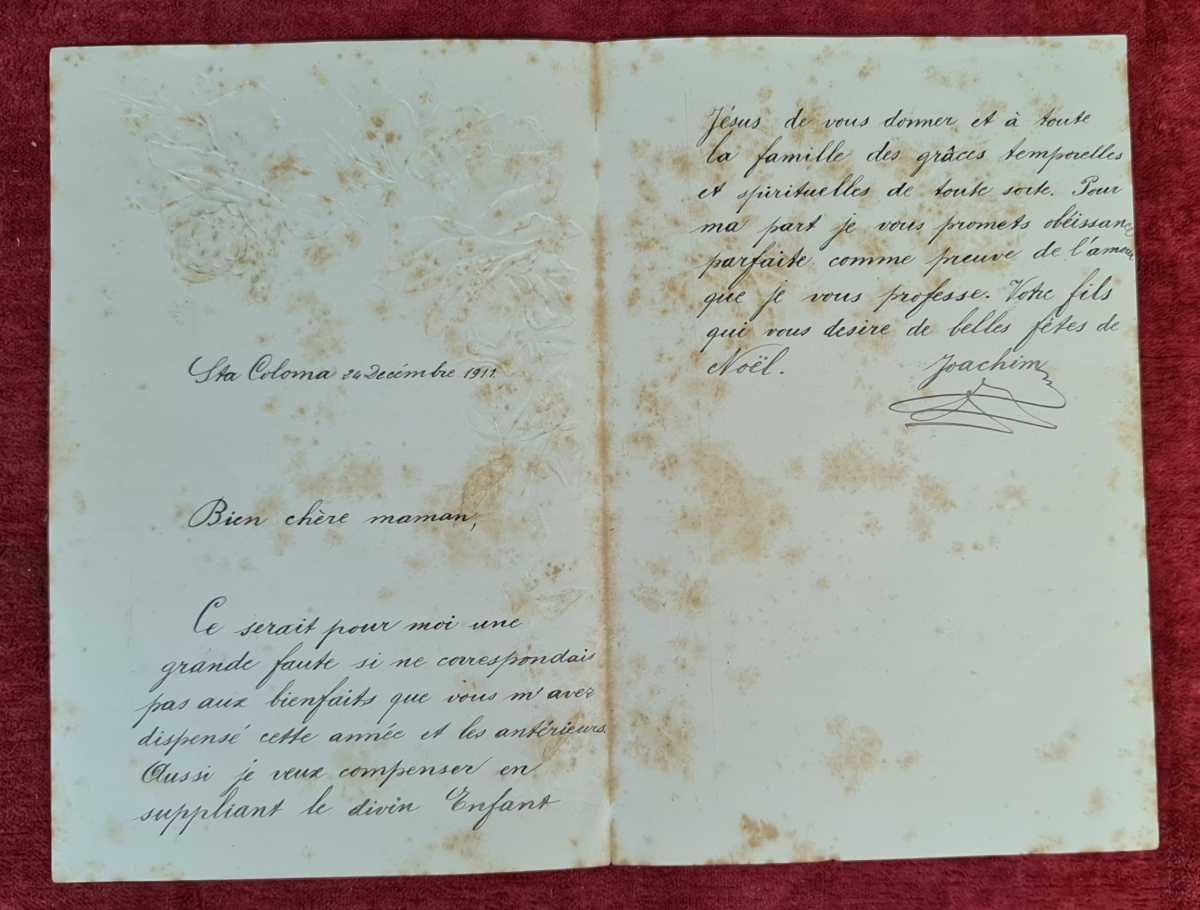 Sta Coloma 24 Decémbre 1911.
Bien chère maman,
Ce serait pour moi une
grande faute si ne correspondais
pas aux bienfaits que vous m'avez
dispensé cette année et les antérieurs.
Aussi je veux compenser en
suppliant le divin Enfant
Jésus de vous donner et à toute
la famille des grâces temporelles
et spirituelles de toute sorte. Pour
ma part je vous promets obéissance
parfaite comme preuve de l'amour
que je vous professe. Votre fils
qui vous desire de belles fêtes de
Noël. Joachim